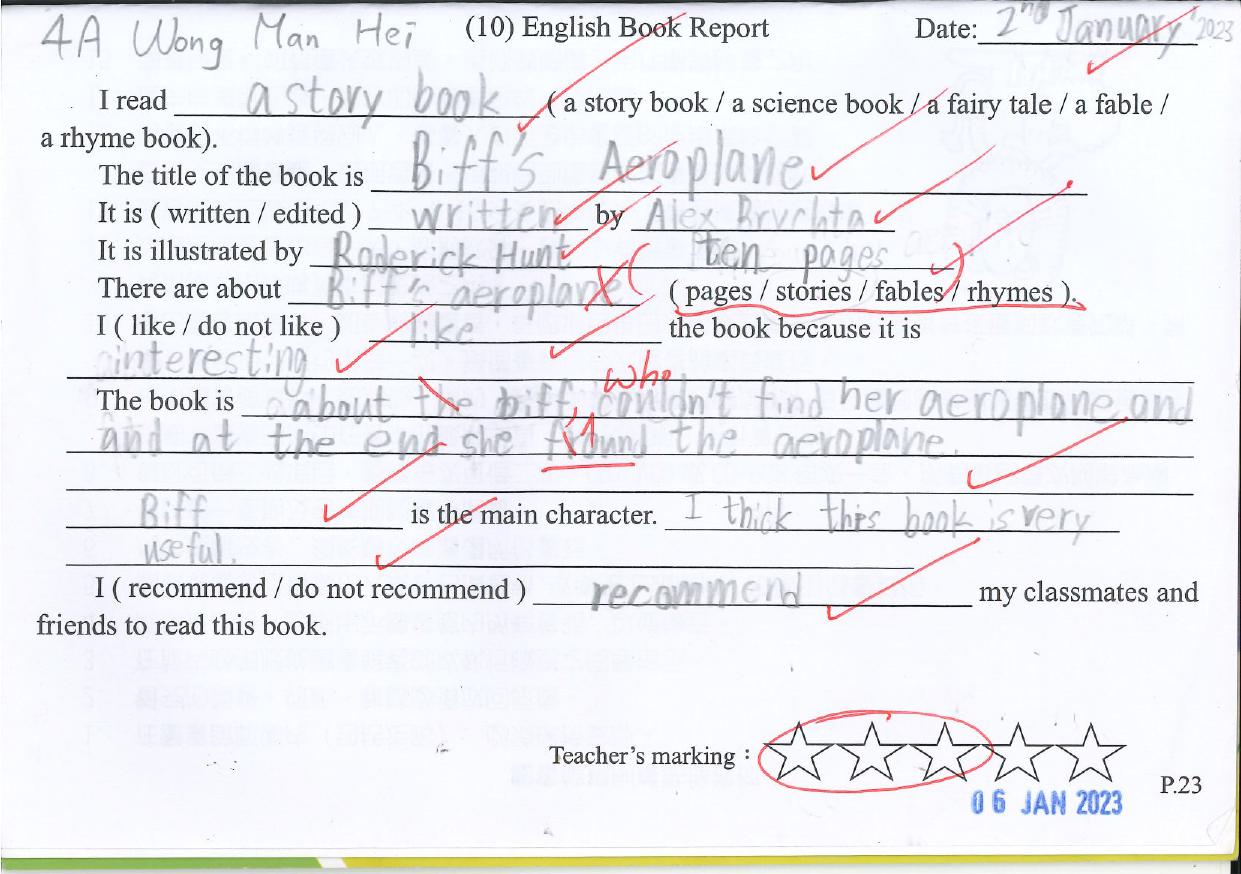 4A Wong Man Hei (10) English Book Report Date: 2nd January 2023
I read a story book ( a story book / a science book / a fairy tale / a fable /
a rhyme book).
The title of the book is Biff's Aeroplane
It is ( written / edited ) written by Alex Brychta
It is illustrated by Roderick Hunt ( ten pages )
There are about Biff's aeroplane ( pages / stories / fables / rhymes ).
I ( like / do not like ) like the book because it is
interesting
who
The book is about the biff, couldn't find her aeroplane and
and at the end she fround the aeroplane.
Biff is the main character. I thick this book is very
useful.
I ( recommend / do not recommend ) recommend my classmates and
friends to read this book.
Teacher's marking :
P.23
06 JAN 2023